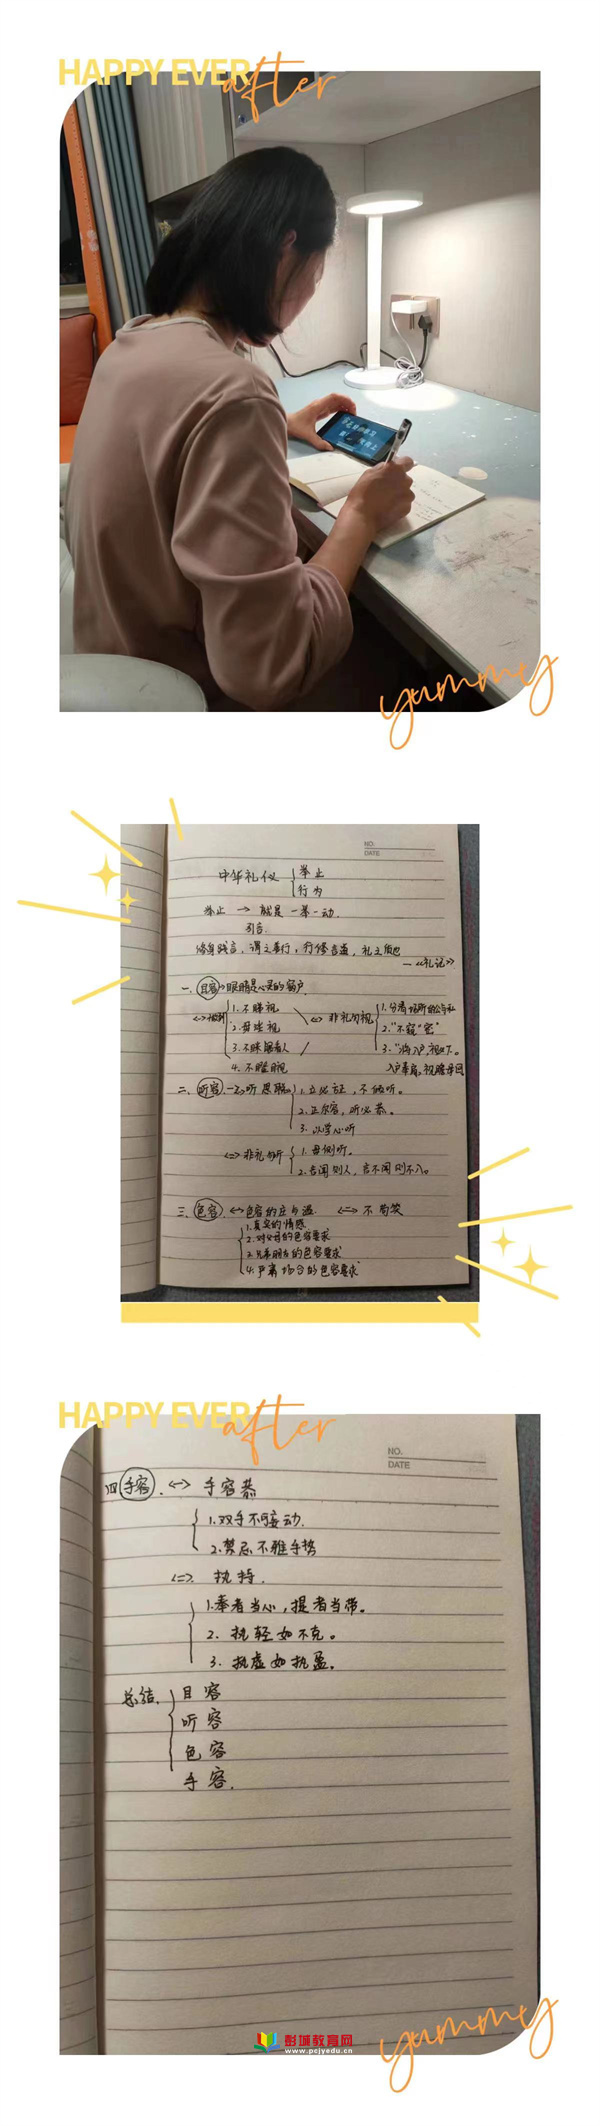 HAPPY EVER
after
yummy
NO.
DATE
中华礼仪 举止
行为
举止 → 就是一举一动.
引言.
修身践言, 谓之善行, 行修言道, 礼之质也
—《礼记》
一、目容 眼睛是心灵的窗户
1. 不睇视
2. 毋淫视
4. 不瞪目视
<=> 非礼勿视
1. 分清场所的公与私
2. “不窥“密”
3. “将入户, 视必下。
入户奉扃, 视瞻毋回
二、听容 一、听思聪
1. 立必方正, 不倾听。
2. 正尔容, 听必恭。
3. 以学心听
<=> 非礼勿听
1. 毋侧听。
三、色容 <-> 色容的庄与温 <=> 不苟笑
1. 真实的情感
2. 对父母的色容要求
3. 兄弟朋友的色容要求
4. 严肃场合的色容要求
HAPPY EVER
after
NO.
DATE
四 手容. <-> 手容恭
1. 双手不可妄动.
2. 禁忌不雅手势
<=>. 执持.
1. 奉者当心, 提者当带。
2. 执轻如不克。
3. 执虚如执盈。
总结. 目容
听容
色容
手容.
彭城教育网
www.pcjyedu.cn
yummy